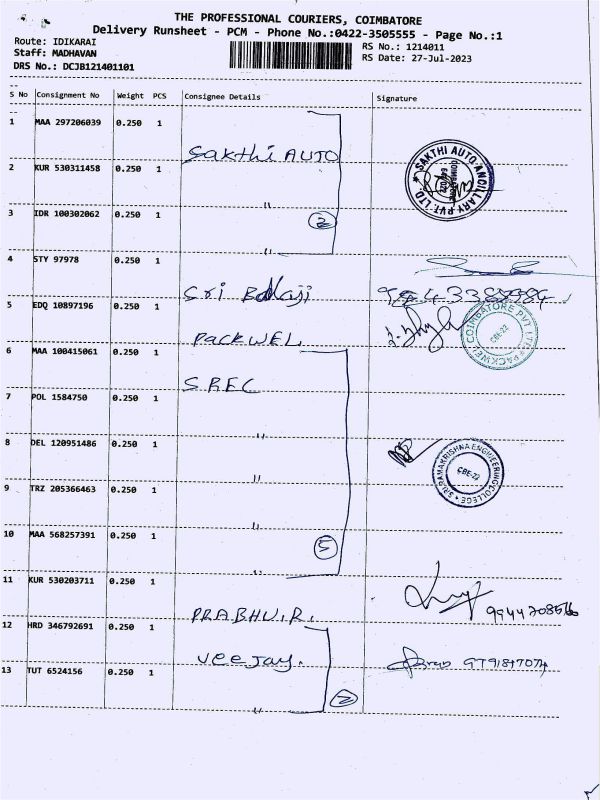 THE PROFESSIONAL COURIERS, COIMBATORE
Delivery Runsheet - PCM - Phone No.:0422-3505555 - Page No.:1
Route: IDIKARAI
Staff: MADHAVAN
DRS No.: DCJB121401101
RS No.: 1214011
RS Date: 27-Jul-2023
S No Consignment No Weight PCS Consignee Details Signature
1 MAA 297206039 0.250 1 Sakthi AUTO
SAKTHI AUTO ANCILLARY PVT. LTD.
2 KUR 530311458 0.250 1 "
3 IDR 100302062 0.250 1 " 3
4 STY 97978 0.250 1 Sri Balaji
5 EDQ 10897196 0.250 1 PACKWEL
PACKWEL COIMBATORE PVT LTD
CBE-22
6 MAA 100415061 0.250 1 SREC
7 POL 1584750 0.250 1 "
8 DEL 120951486 0.250 1 "
SRI RAMAKRISHNA ENGINEERING COLLEGE
CBE-22
9 TRZ 205366463 0.250 1 "
10 MAA 568257391 0.250 1 " 5
11 KUR 530203711 0.250 1 PRABHU.R.
12 HRD 346792691 0.250 1 Veejay.
13 TUT 6524156 0.250 1 " 2